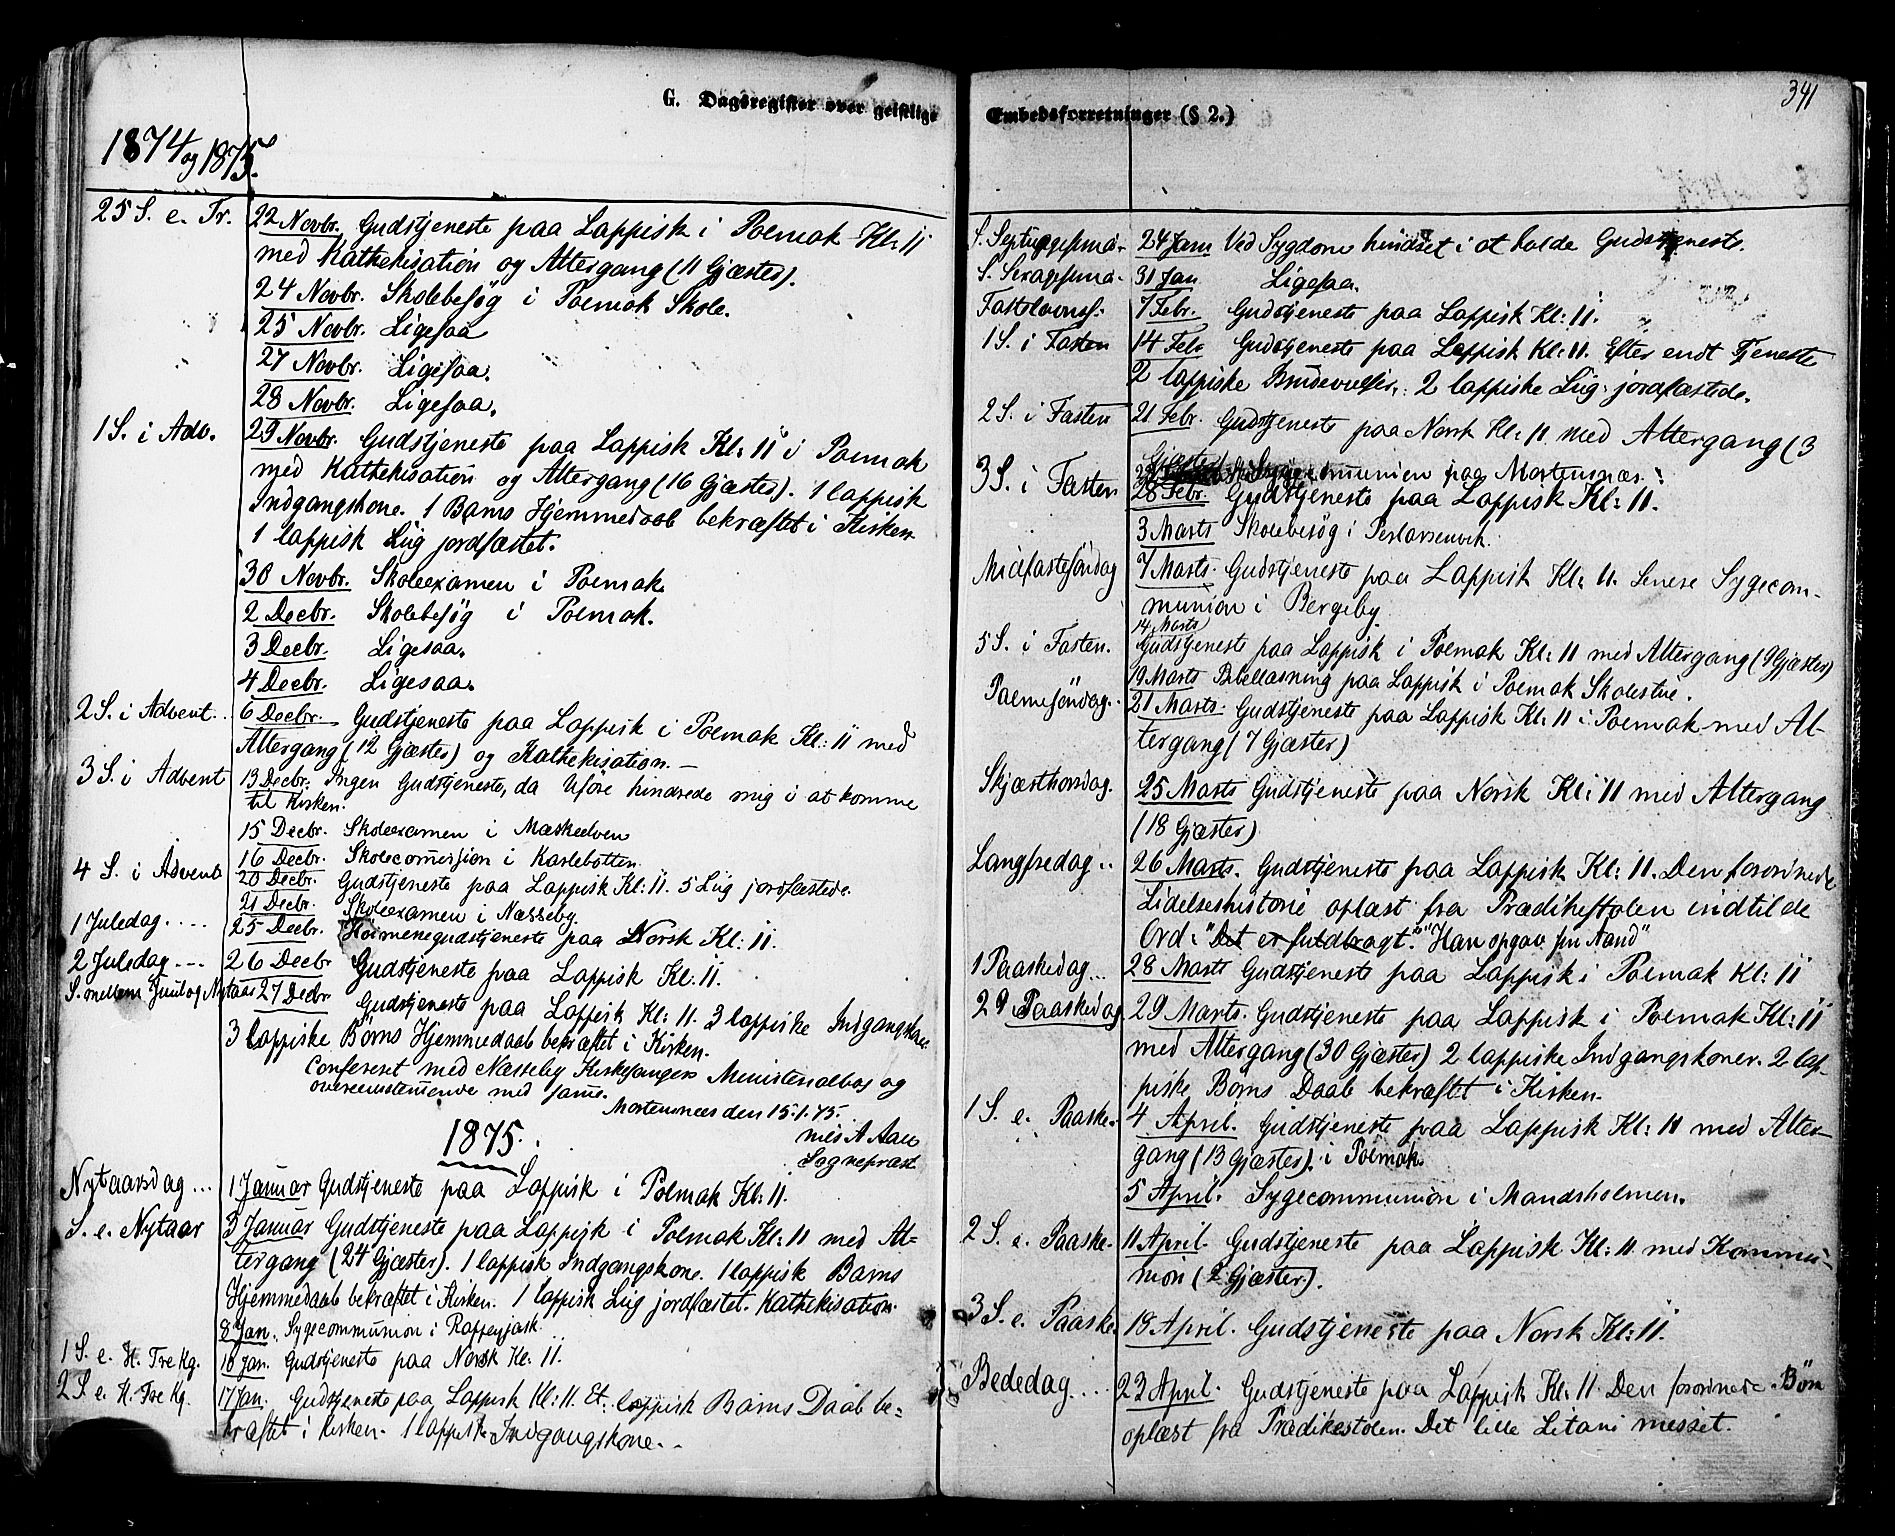 G. Dagsregister over geistlige
1874 og 1875.
25 S. e. Tr. 22 Novbr. Gudstjeneste paa Lappisk i Polmak Kl: 11
med Kathekisation og Altergang (11 Gjæster).
24 Novbr. Skolebesøg i Polmak Skole.
25 Novbr. Ligesaa
27 Novbr. Ligesaa.
28 Novbr. Ligesaa.
1 S. i Adv. 29 Novbr. Gudstjeneste paa Lappisk Kl: 11 i Polmak
med Kathekisation og Altergang (16 Gjæster). 1 lappisk
Indgangskone. 1 Barns Hjemmedaab bekræftet i Kirken
1 lappisk Liig jordfæstet.
30 Novbr. Skoleexamen i Polmak
2 Decbr. Skolebesøg i Polmak.
3 Decbr. Ligesaa.
4 Decbr. Ligesaa.
2 S. i Advent.. 6 Decbr. Gudstjeneste paa Lappisk i Polmak Kl: 11 med
Altergang (12 Gjæster) og Kathekisation. —
3 S. i Advent 13 Decbr. Ingen Gudstjeneste, da Uføre hindrede mig i at komme
til Kirken.
15 Decbr. Skoleexamen i Mæskeelven
16 Decbr. Skolecommission i Karlebotten
4 S. i Advent 20 Decbr. Gudstjeneste paa Lappisk Kl: 11. 5 Liig jordfæstede.
21 Decbr. Skoleexamen i Næsseby
1 Juledag.... 25 Decbr. Høimessegudstjeneste paa Norsk Kl: 11.
2 Juledag... 26 Decbr Gudstjeneste paa Lappisk Kl. 11.
S. mellem Juul og Nytaar 27 Decbr Gudstjeneste paa Lappisk Kl: 11. 3 lappiske Indgangskoner
3 lappiske Børns Hjemmedaab bekræftet i Kirken.
Confereret med Næsseby Kirkesangers Ministerialbog og
overeensstemmende med samme.
Mortensnæs den 15.1.75.
Nils A Aall
Sognepræst
1875.
Nytaarsdag... 1 Januar Gudstjeneste paa Lappisk i Polmak Kl: 11.
S. e. Nytaar 3 Januar Gudstjeneste paa Lappisk i Polmak Kl: 11 med Al-
tergang (24 Gjæster). 1 lappisk Indgangskone. 1 lappisk Barns
Hjemmedaab bekræftet i Kirken. 1 lappisk Liig jordfæstet. Kathekisation.
8 Jan. Sygecommunion i
1 S. e. H. Tre Kg. 10 Jan. Gudstjeneste paa Norsk Kl: 11.
2 S. e. H. Tre Kg. 17 Jan. Gudstjeneste paa Lappisk Kl: 11. Et lappisk Barns Daab be-
kræftet i Kirken. 1 lappisk Indgangskone..
Embedsforretninger (§ 2.)
341
S. Septuagesima. 24 Jan Ved Sygdom hindret i at holde Gudstjeneste.
S. Sexagesima. 31 Jan Ligesaa.
Fastelavnss. 7 Febr. Gudstjeneste paa Lappisk Kl: 11.
1 S. i Fasten 14 Feb Gudstjeneste paa Lappisk Kl: 11. Efter endt Tjeneste
2 lappiske Brudevielser. 2 lappiske Liig jordfæstede.
2 S. i Fasten 21 Febr. Gudstjeneste paa Norsk Kl: 11 med Altergang (3
Gjæster) Sygecommunion paa Mortensnæs.
3 S. i Fasten 28 Febr. Gudstjeneste paa Lappisk Kl: 11.
3 Marts Skolebesøg i Perlarsenvik.
Midfastesøndag 7 Marts. Gudstjeneste paa Lappisk Kl: 11. Senere Sygecom-
munion i Bergeby.
14 Marts
5 S. i Fasten. Gudstjeneste paa Lappisk i Polmak Kl: 11 med Altergang (9 Gjæster)
19 Marts Bibellæsning paa Lappisk i Polmak Skolestue.
Palmesøndag. 21 Marts. Gudstjeneste paa Lappisk Kl: 11 i Polmak med Al-
tergang (7 Gjæster)
Skjærthorsdag. 25 Marts Gudstjeneste paa Norsk Kl: 11 med Altergang
(18 Gjæster)
Langfredag.. 26 Marts. Gudstjeneste paa Lappisk Kl: 11. Den forordnede
Lidelseshistorie oplæst fra Prædikestolen indtil de
Ord: "Det er fuldbragt." "Han opgav sin Aand"
1 Paaskedag... 28 Marts Gudstjeneste paa Lappisk i Polmak Kl: 11
2 Paaskedag 29 Marts. Gudstjeneste paa Lappisk i Polmak Kl: 11
med Altergang (30 Gjæster) 2 lappiske Indgangskoner. 2 lap-
piske Børns Daab bekræftet i Kirken.
1 S. e. Paaske. 4 April. Gudstjeneste paa Lappisk Kl: 11 med Alter-
gang (13 Gjæster). i Polmak
5 April. Sygecommunion i Mandsholmen.
2 S. e. Paaske. 11 April. Gudstjeneste paa Lappisk Kl: 11 med Kommu-
nion (2 Gjæster).
3 S. e. Paaske. 18 April. Gudstjeneste paa Norsk Kl: 11.
Bededag.... 23 April. Gudstjeneste paa Lappisk Kl: 11. Den forordnede Bøn
oplæst fra Prædikestolen. Det lille Litani messet.